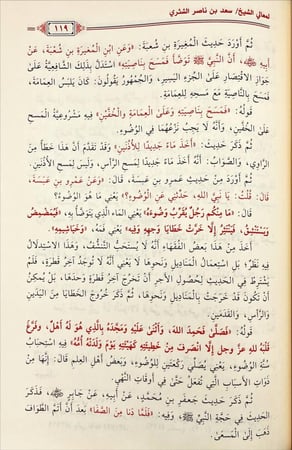 لمعالي الشيخ/ سعد بن ناصر الشثري
١١٩
ثُمَّ أَوْرَدَ حَدِيثَ الْمُغِيرَةِ بْنِ شُعْبَةَ: «وَعَنِ ابْنِ الْمُغِيرَةِ بْنِ شُعْبَةَ، عَنْ
أَبِيهِ ﷺ، أَنَّ النَّبِيَّ ﷺ تَوَضَّأَ فَمَسَحَ بِنَاصِيَتِهِ» اسْتَدَلَّ بِذَلِكَ الشَّافِعِيَّةُ عَلَى
جَوَازِ الِاقْتِصَارِ عَلَى الْجُزْءِ الْيَسِيرِ، وَالْجُمْهُورُ يَقُولُونَ: كَانَ يَلْبَسُ الْعِمَامَةَ،
فَمَسَحَ بِالنَّاصِيَةِ مَعَ مَسْحِهِ لِلْعِمَامَةِ.
قَوْلُهُ: «فَمَسَحَ بِنَاصِيَتِهِ وَعَلَى الْعِمَامَةِ وَالْخُفَّيْنِ» فِيهِ مَشْرُوعِيَّةُ الْمَسْحِ
عَلَى الْخُفَّيْنِ، وَأَنَّهُ لَا يَجِبُ نَزْعُهُمَا فِي الْوُضُوءِ.
ثُمَّ ذَكَرَ حَدِيثَ: «أَخَذَ مَاءً جَدِيدًا لِلْأُذُنَيْنِ» وَقَدْ تَقَدَّمَ أَنَّ هَذَا خَطَأٌ مِنَ
الرَّاوِي، وَالصَّوَابُ: أَنَّهُ أَخَذَ مَاءً جَدِيدًا لِمَسْحِ الرَّأْسِ، وَلَيْسَ لِمَسْحِ الْأُذُنَيْنِ.
ثُمَّ أَوْرَدَ مِنْ حَدِيثِ عَمْرِو بْنِ عَبَسَةَ، قَالَ: «وَعَنْ عَمْرِو بْنِ عَبَسَةَ،
قَالَ: قُلْتُ: يَا نَبِيَّ اللهِ، حَدِّثْنِي عَنِ الْوُضُوءِ؟» يَعْنِي مَا هُوَ الْوُضُوءُ؟
قَالَ: «مَا مِنْكُمْ رَجُلٌ يُقَرِّبُ وَضُوءَهُ» يَعْنِي الْمَاءَ الَّذِي يَتَوَضَّأُ بِهِ، «فَيُمَضْمِضُ
وَيَسْتَنْشِقُ، فَيَنْتَثِرُ إِلَّا خَرَّتْ خَطَايَا وَجْهِهِ وَفِيهِ» يَعْنِي فَمَهُ، «وَخَيَاشِيمِهِ»
أَخَذَ مِنْ هَذَا بَعْضُ الْفُقَهَاءِ أَنَّهُ لَا يُسْتَحَبُّ التَّنَشُّفُ، وَهَذَا الِاسْتِدْلَالُ
فِيهِ نَظَرٌ؛ بَلِ اسْتِعْمَالُ الْمَنَادِيلِ وَنَحْوِهَا، لَا يَعْنِي أَنَّهُ لَا تُوجَدُ آخِرُ قَطْرَةٍ، فَلَمْ
يُشْتَرَطْ فِي الْحَدِيثِ لِحُصُولِ الْأَجْرِ أَنْ تَخْرُجَ آخِرُ قَطْرَةٍ وَحْدَهَا، بَلْ يُمْكِنُ
أَنْ تَكُونَ قَدْ خَرَجَتْ بِالْمَنَادِيلِ وَنَحْوِهَا، ثُمَّ ذَكَرَ خُرُوجَ الْخَطَايَا مِنَ الْيَدَيْنِ
وَالرَّأْسِ، وَالْقَدَمَيْنِ.
قَوْلُهُ: «فَصَلَّى، فَحَمِدَ اللهَ، وَأَثْنَى عَلَيْهِ وَمَجَّدَهُ بِالَّذِي هُوَ لَهُ أَهْلٌ، وَفَرَّغَ
قَلْبَهُ لِلهِ عز وجل إِلَّا انْصَرَفَ مِنْ خَطِيئَتِهِ كَهَيْئَتِهِ يَوْمَ وَلَدَتْهُ أُمُّهُ» فِيهِ اسْتِحْبَابُ
سُنَّةِ الْوُضُوءِ، يَعْنِي يُصَلِّي رَكْعَتَيْنِ لِلْوُضُوءِ، وَبَعْضُ أَهْلِ الْعِلْمِ قَالَ: إِنَّهَا مِنْ
ذَوَاتِ الْأَسْبَابِ الَّتِي تُفْعَلُ حَتَّى فِي أَوْقَاتِ النَّهْيِ.
ثُمَّ ذَكَرَ حَدِيثَ جَعْفَرِ بْنِ مُحَمَّدٍ، عَنْ أَبِيهِ، عَنْ جَابِرٍ ﷺ، فَذَكَرَ
الْحَدِيثَ فِي حَجَّةِ النَّبِيِّ ﷺ، وَفِيهِ: «فَلَمَّا دَنَا مِنَ الصَّفَا» بَعْدَ أَنْ أَتَمَّ الطَّوَافَ
ذَهَبَ إِلَى الْمَسْعَى.